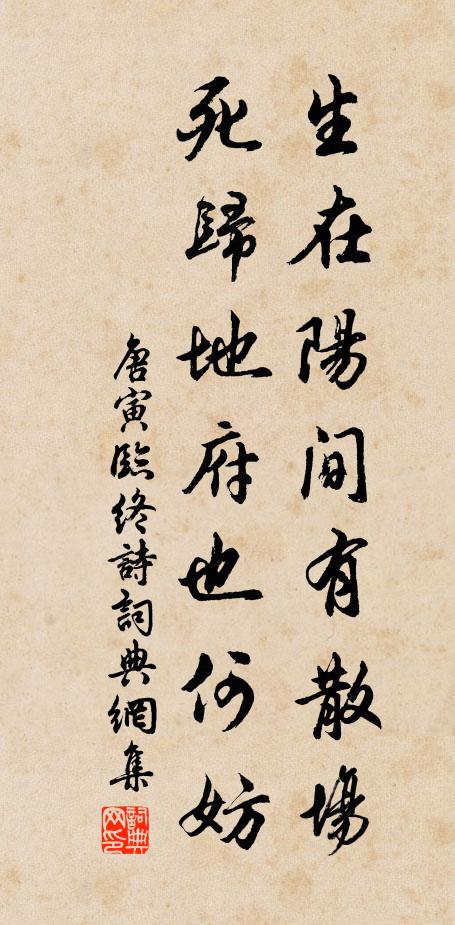 生在陽間有散場
死歸地府也何妨
唐寅臨終詩詞典網集
詞典網印